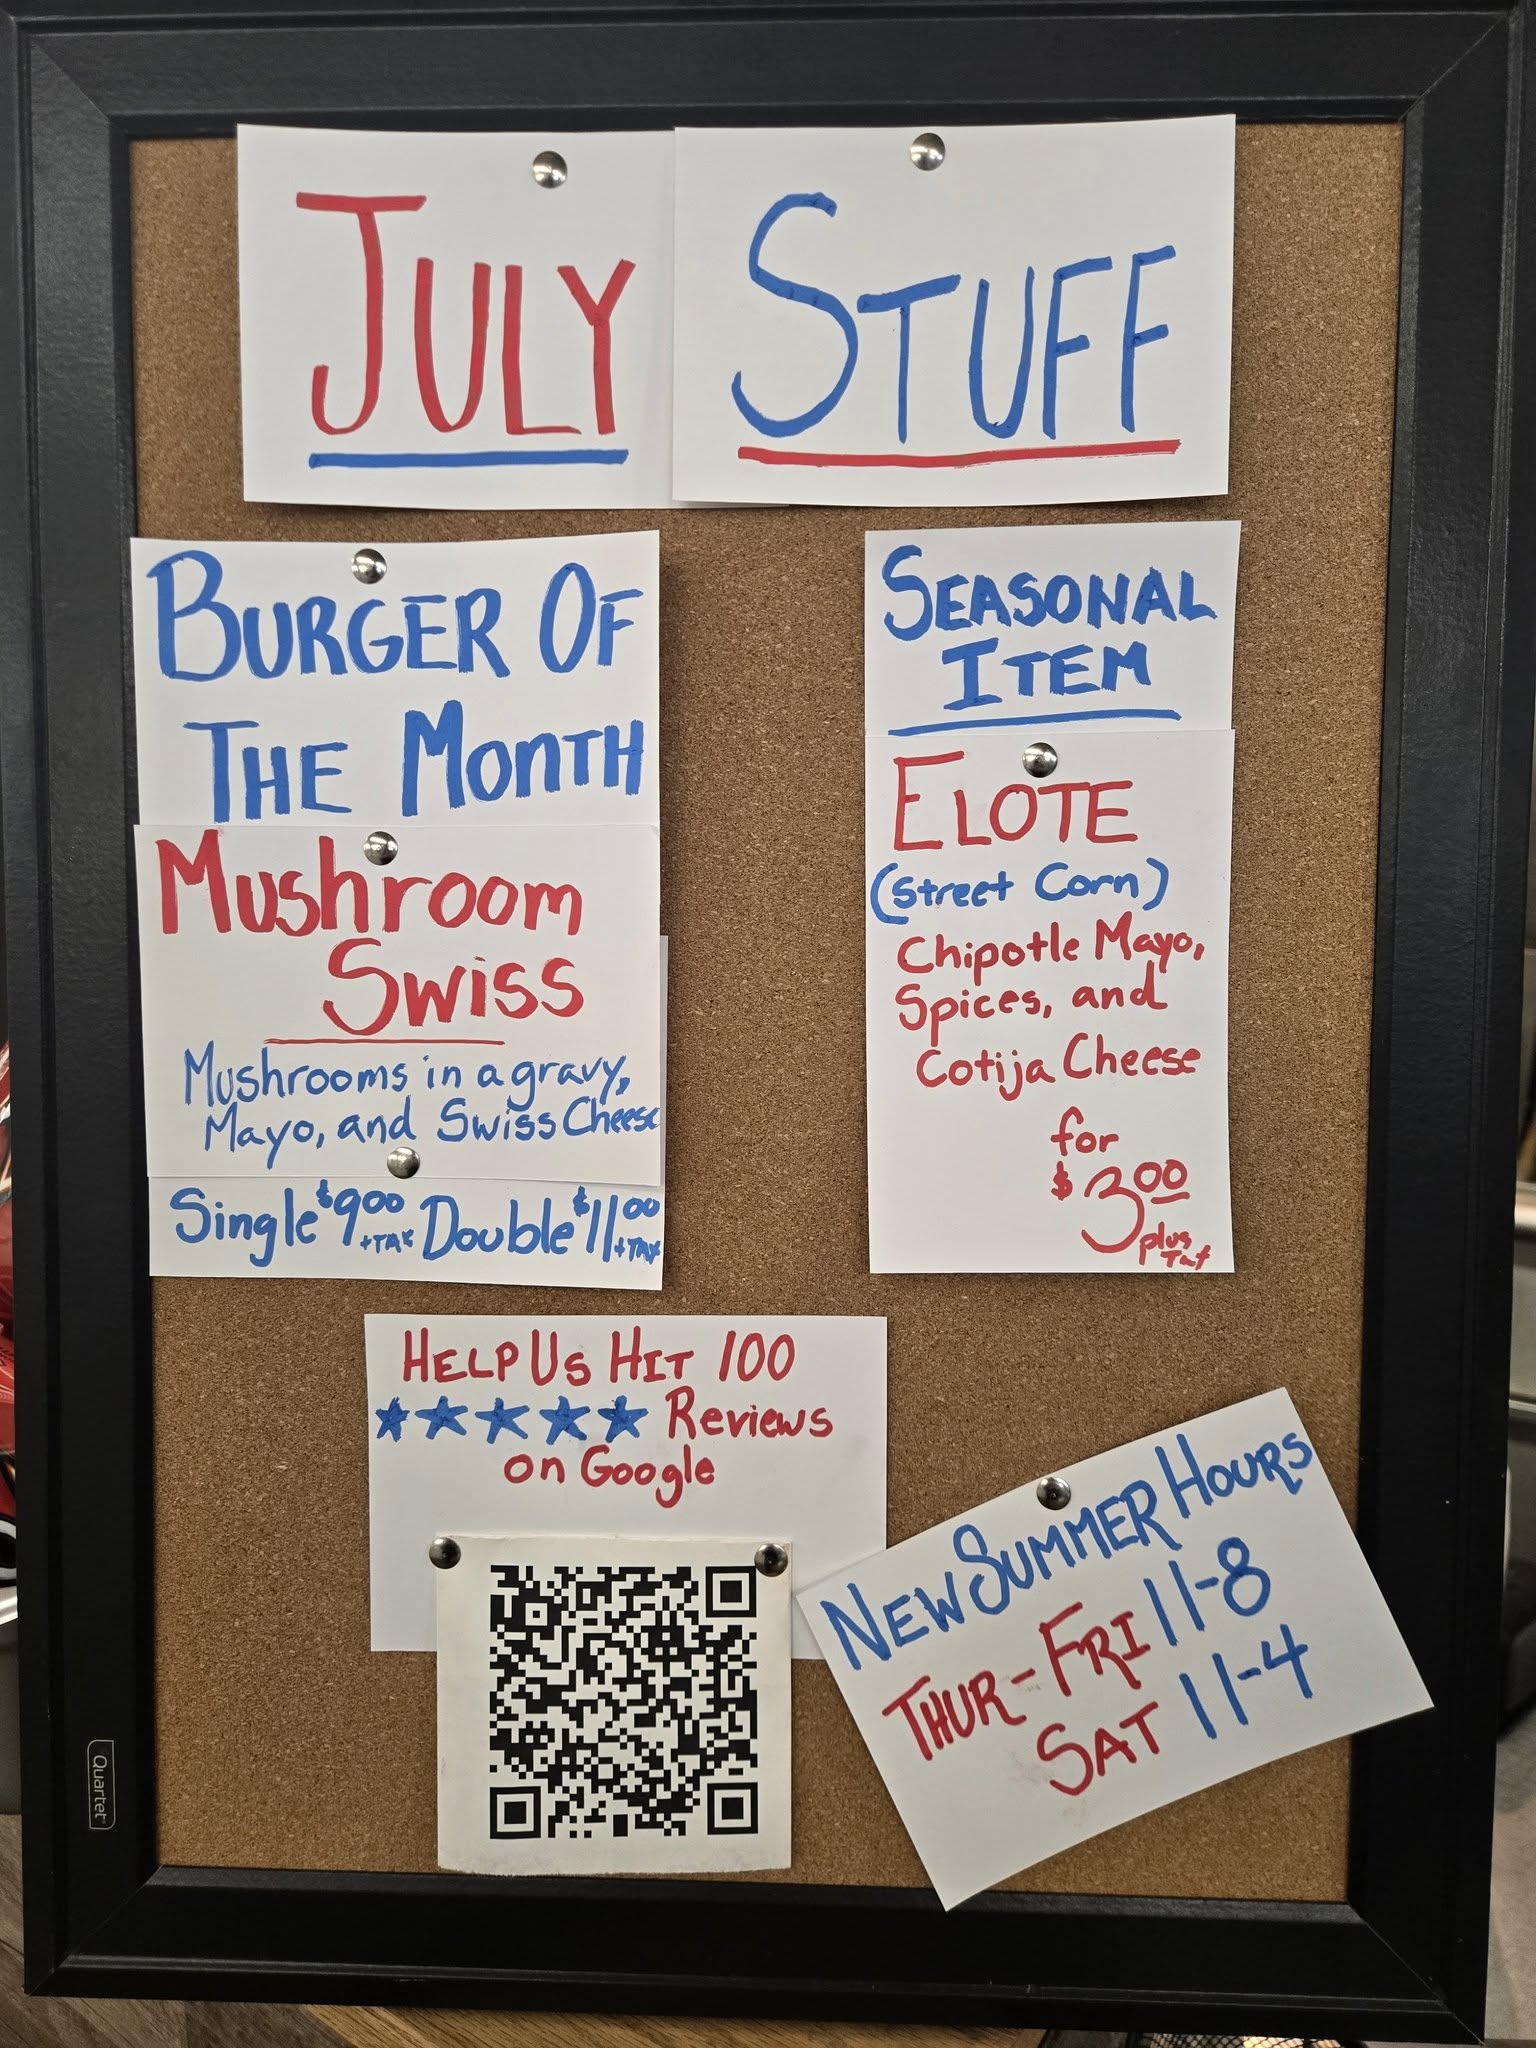 JULY STUFF
BURGER OF
THE MONTH
Mushroom
Swiss
Mushrooms in a gravy,
Mayo, and Swiss Cheese
Single $9.00 +TAX Double $11.00 +TAX
SEASONAL
ITEM
ELOTE
(Street Corn)
Chipotle Mayo,
Spices, and
Cotija Cheese
for
$3.00
plus
Tax
HELP US HIT 100
★★★★★ Reviews
on Google
NEW SUMMER HOURS
THUR-FRI 11-8
SAT 11-4
Quartet